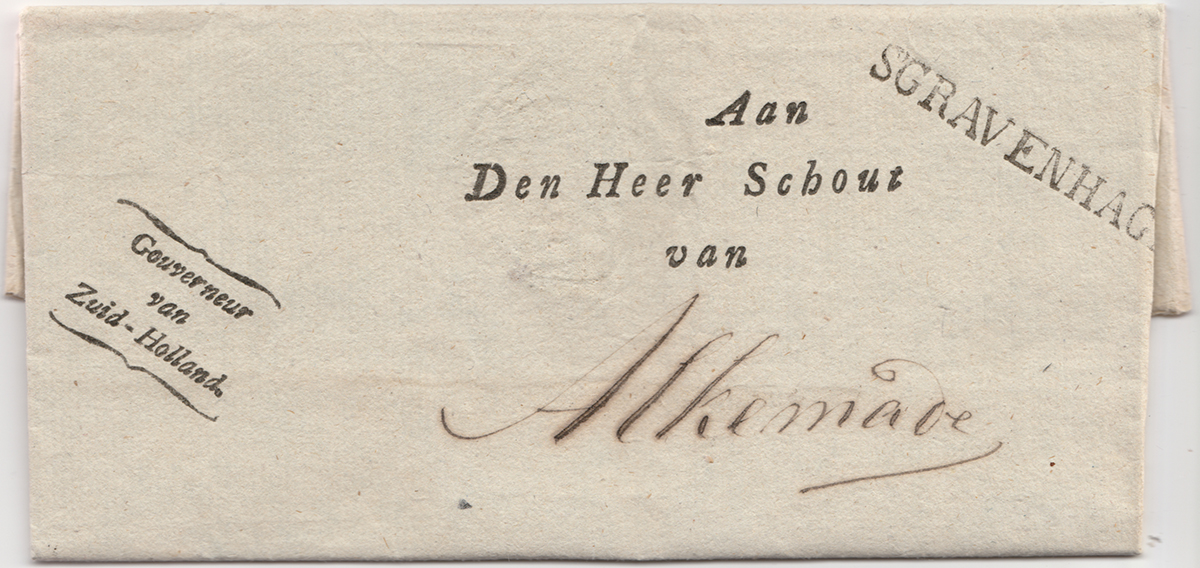 SGRAVENHAG
Aan
Den Heer Schout
van
Alkemade
Gouverneur
van
Zuid-Holland.